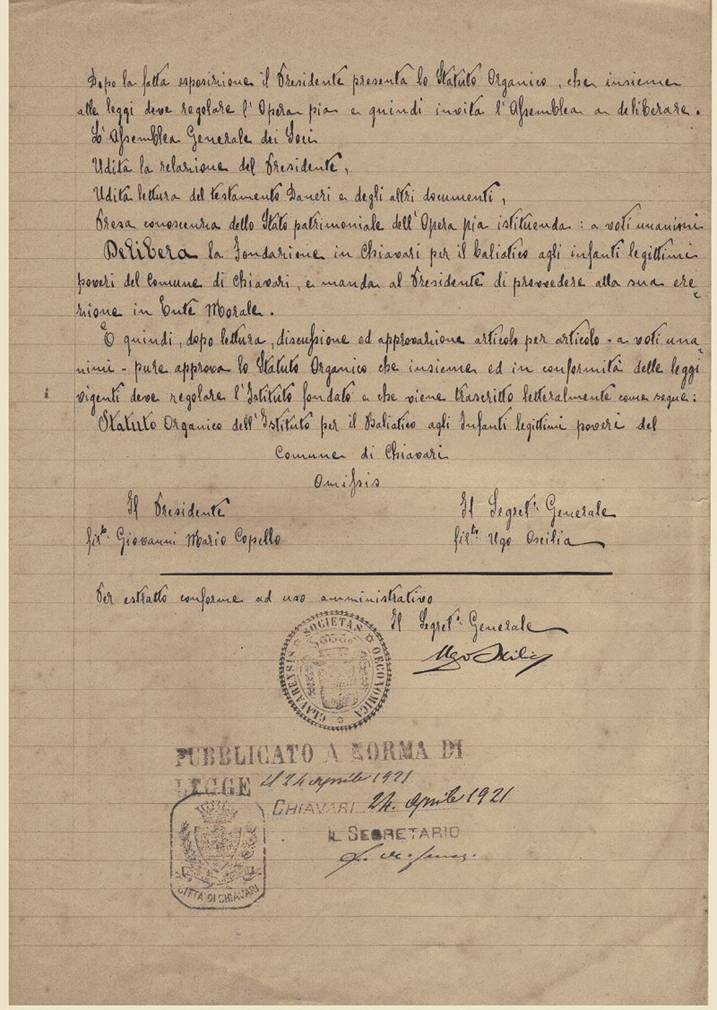 Dopo la fatta esposizione il Presidente presenta lo Statuto Organico, che insieme
alle leggi deve regolare l'Opera pia e quindi invita l'Assemblea a deliberare.
L'Assemblea Generale dei Soci
Udita la relazione del Presidente,
Udita lettura del testamento Daneri e degli altri documenti,
Presa conoscenza dello Stato patrimoniale dell'Opera pia istituenda: a voti unanimi
Delibera la Fondazione in Chiavari per il baliatico agli infanti legittimi
poveri del Comune di Chiavari, e manda al Presidente di provvedere alla sua ere-
zione in Ente Morale.
E quindi, dopo lettura, discussione ed approvazione articolo per articolo - a voti una-
nimi - pure approva lo Statuto Organico che insieme ed in conformità delle leggi
vigenti deve regolare l'Istituto fondato e che viene trascritto letteralmente come segue:
Statuto Organico dell'Istituto per il Baliatico agli Infanti legittimi poveri del
Comune di Chiavari
Omissis
Il Presidente
Il Segret. Generale
fir.to Giovanni Mario Copello
fir.to Ugo Oxilia
Per estratto conforme ad uso amministrativo
Il Segret. Generale
Ugo Oxilia
SOCIETAS OECONOMICA CLAVARENSIS
PUBBLICATO A NORMA DI
LEGGE il 24 aprile 1921
CHIAVARI 24 aprile 1921
IL SEGRETARIO
CITTÀ DI CHIAVARI